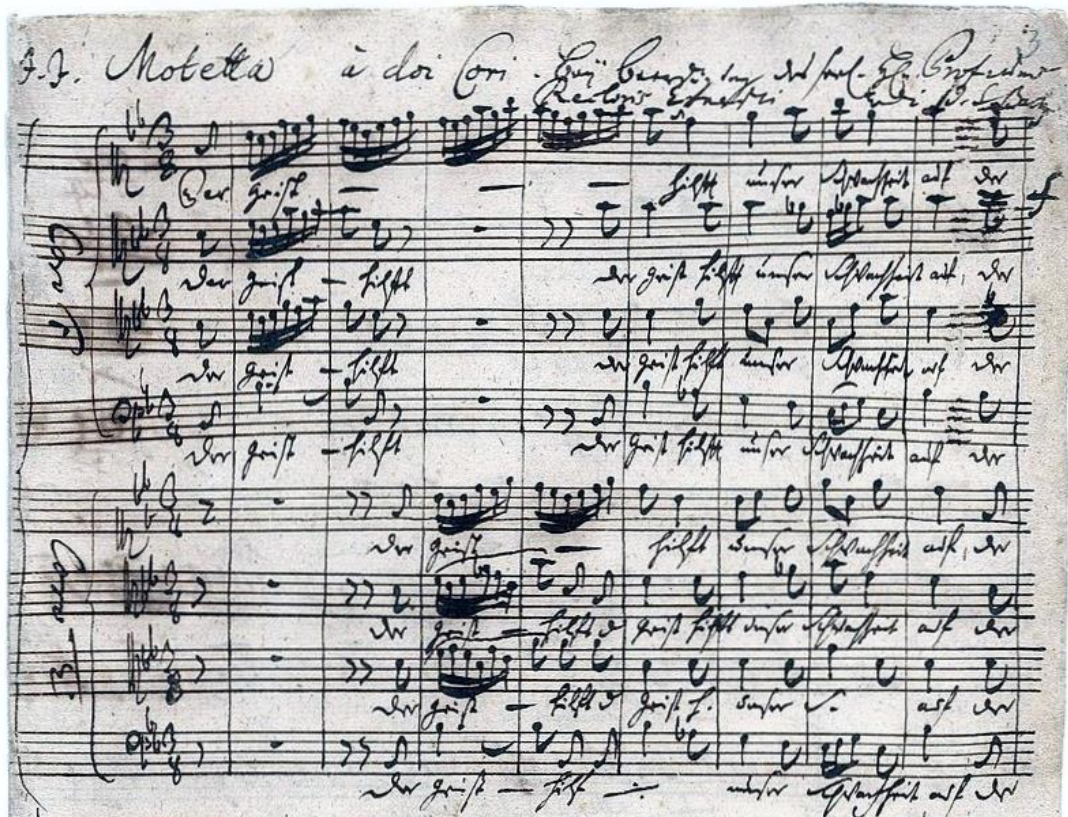 J. J. Motetta à doi Cori. Bey Beerdigung des seel. Hn. Profeßoris
Rectoris Ernesti di J. S. Bach.
3
Der Geist hilfft unser Schwachheit auf der
Der Geist hilfft der Geist hilfft unser Schwachheit auf, der
Der Geist hilfft der Geist hilfft unser Schwachheit auf der
Der Geist hilfft der Geist hilfft unser Schwachheit auf der
Der Geist hilfft unser Schwachheit auf, der
der Geist hilfft d Geist hilfft unser Schwachheit auf der
der Geist hilfft d Geist h. unser S. auf der
der Geist hilfft unser Schwachheit auf der